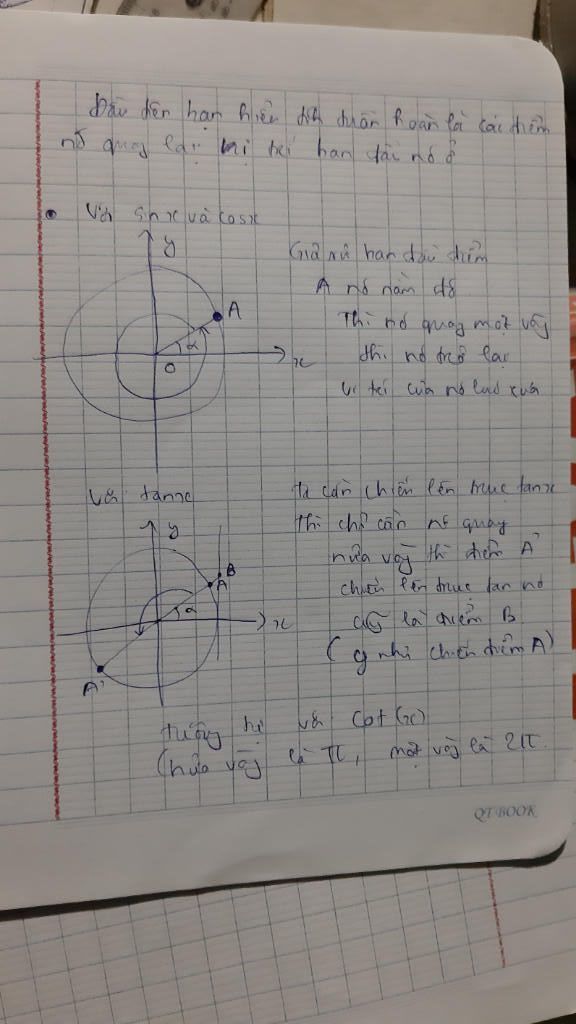 Đầu tiên bạn hiểu tính tuần hoàn là các điểm
nó quay lại vị trí ban đầu nó ở
Với sinx và cosx
y
A
α
O
x
Giả sử ban đầu điểm
A nó nằm đó
Thì nó quay một vòng
thì nó trở lại
vị trí của nó lúc xưa
Với tanx
y
B
A
α
x
A'
ta cần chiếu lên trục tanx
thì chỉ cần nó quay
nửa vòng thì điểm A'
chiếu lên trục tan nó
cũng là điểm B
(y như chiếu điểm A)
tương tự với cot(x)
(nửa vòng là π, một vòng là 2π
QT BOOK